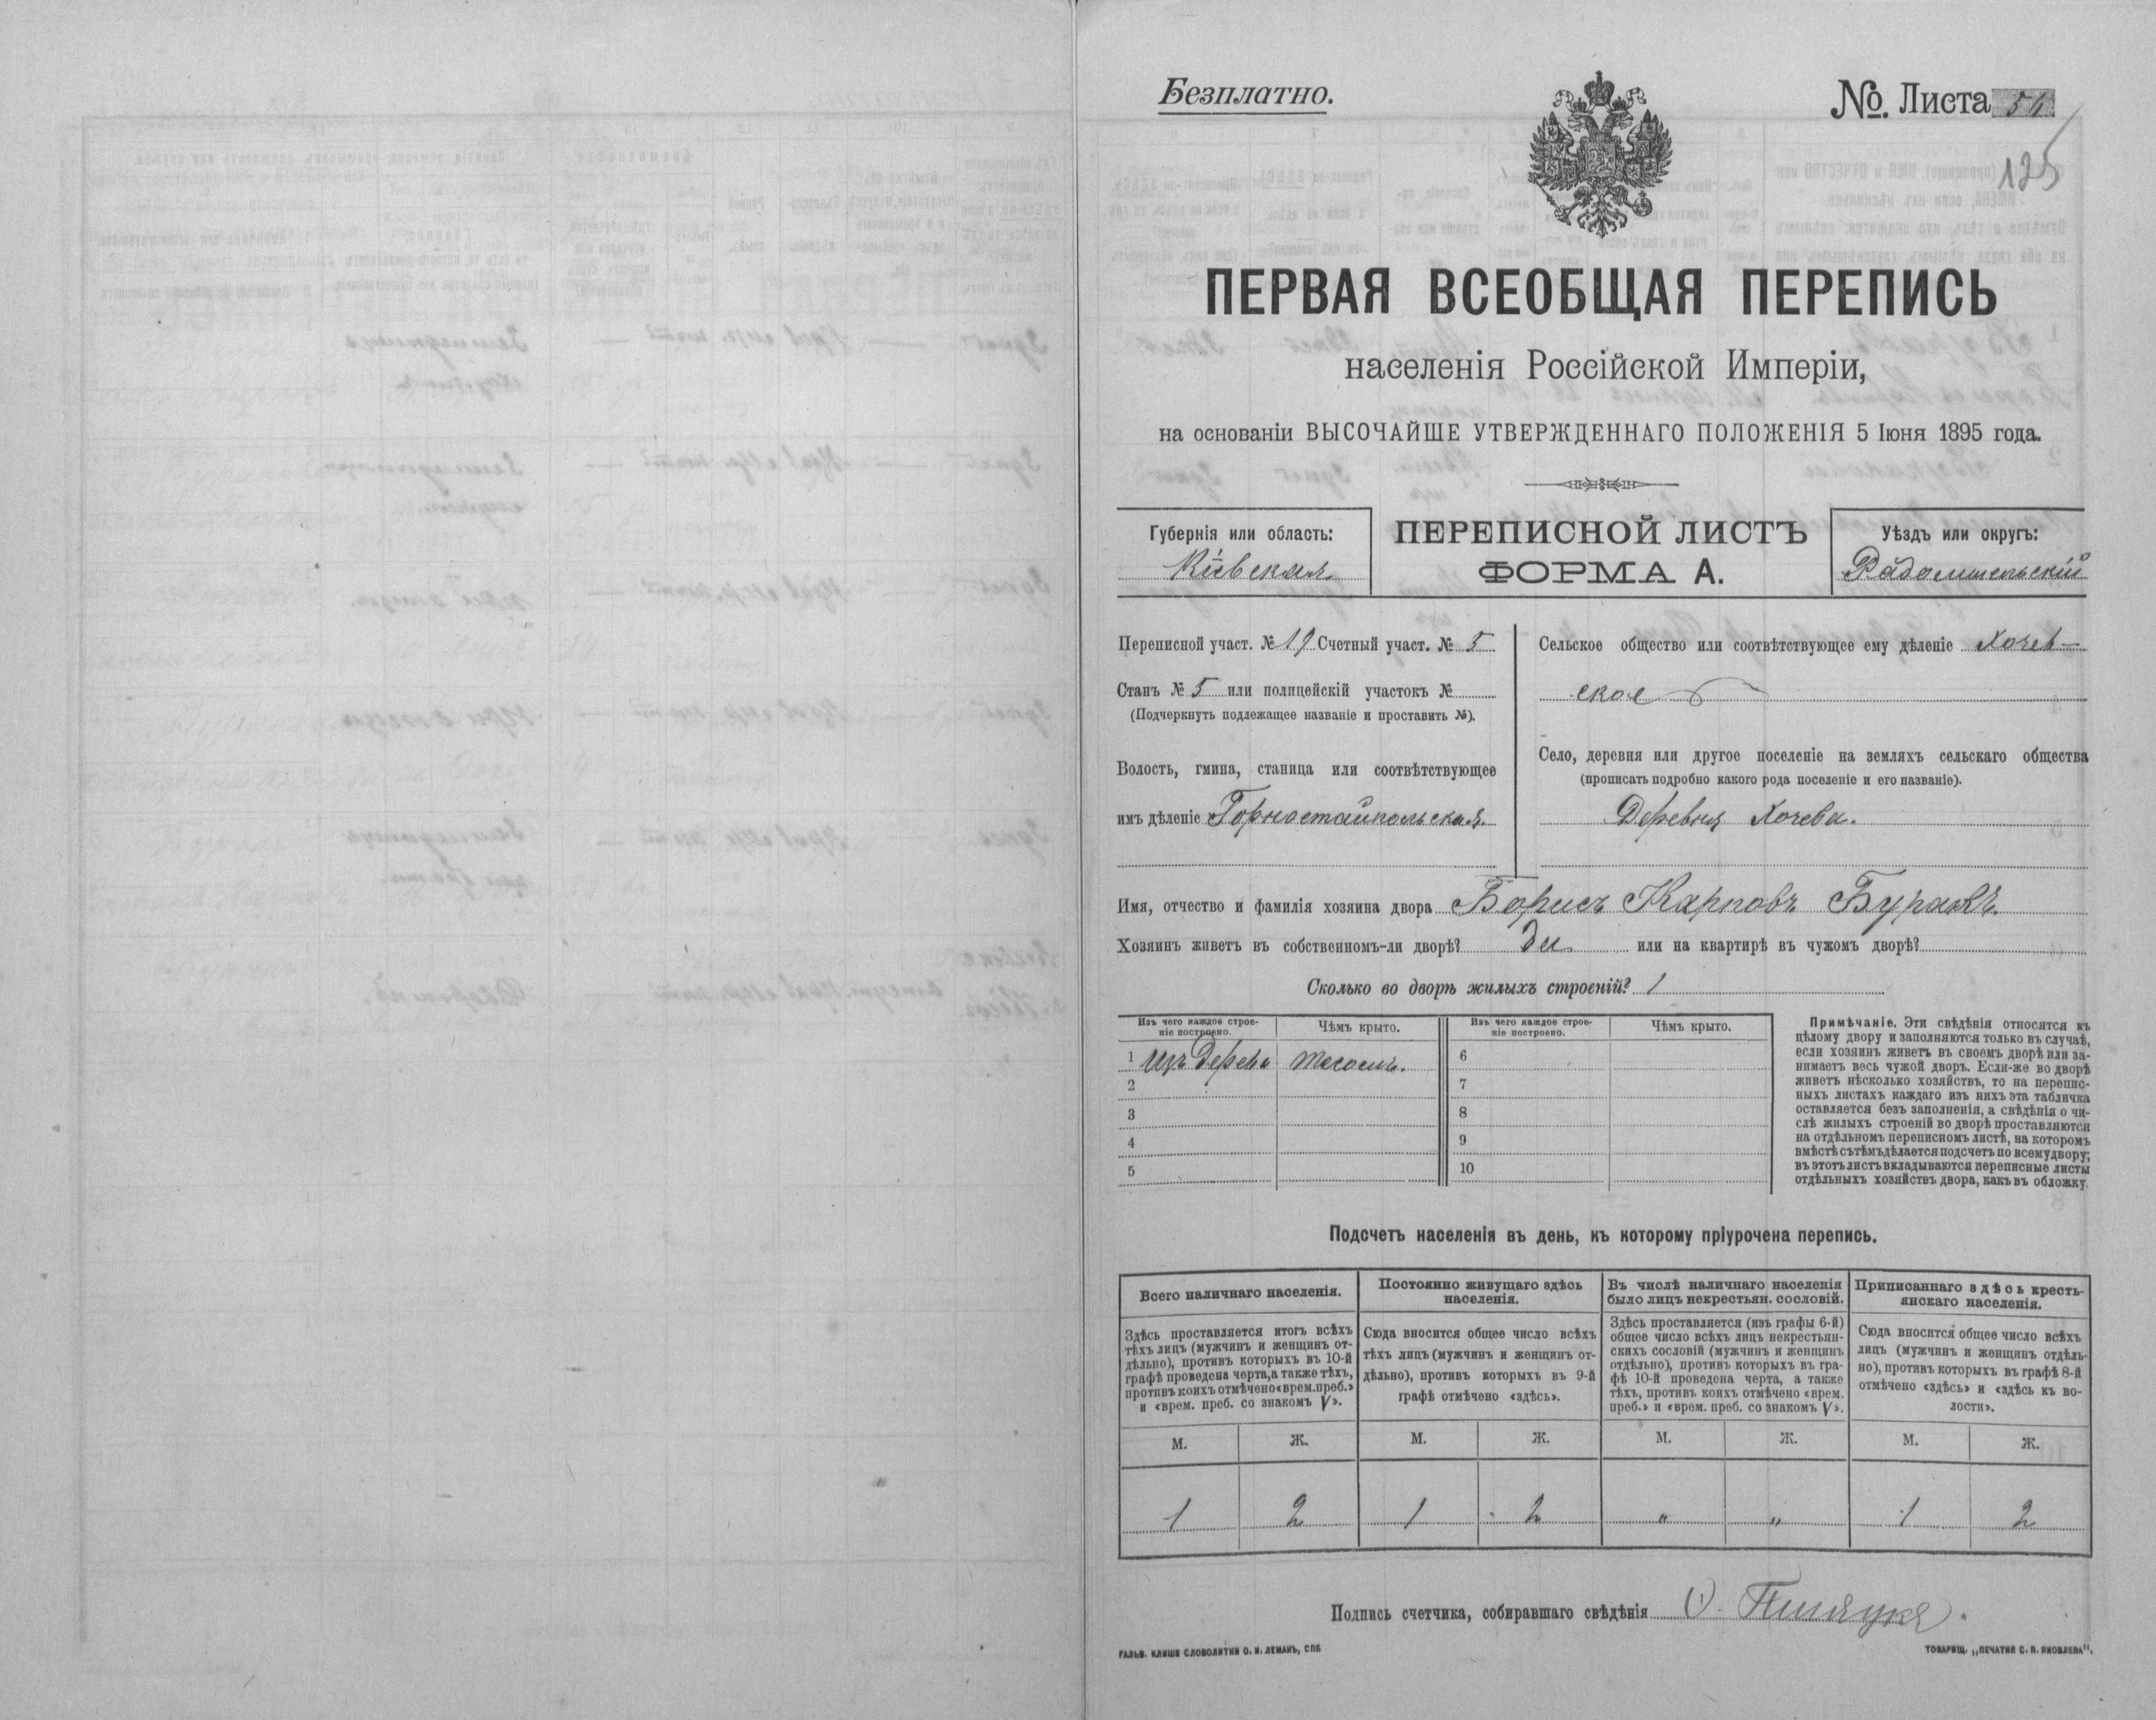 Безплатно.
№. Листа 54
125
ПЕРВАЯ ВСЕОБЩАЯ ПЕРЕПИСЬ
населенія Россійской Имперіи,
на основаніи ВЫСОЧАЙШЕ УТВЕРЖДЕННАГО ПОЛОЖЕНІЯ 5 Іюня 1895 года.
Губернія или область:
Кіевская
ПЕРЕПИСНОЙ ЛИСТЪ
ФОРМА А.
Уѣздъ или округъ:
Радомысльскій
Переписной участ. № 19 Счетный участ. № 5
Станъ № 5 или полицейскій участокъ №
(Подчеркнуть подлежащее названіе и проставить №).
Волость, гмина, станица или соотвѣтствующее
имъ дѣленіе Горностайпольская
Сельское общество или соотвѣтствующее ему дѣленіе Хочев-
ское
Село, деревня или другое поселеніе на земляхъ сельскаго общества
(прописать подробно какого рода поселеніе и его названіе).
Деревня Хочева.
Имя, отчество и фамилія хозяина двора Борисъ Карповъ Буракъ.
Хозяинъ живетъ въ собственномъ-ли дворѣ? Да или на квартирѣ въ чужомъ дворѣ?
Сколько во дворѣ жилыхъ строеній? 1
Изъ чего каждое строе-
ніе построено.
Чѣмъ крыто.
Изъ чего каждое строе-
ніе построено.
Чѣмъ крыто.
1 Изъ дерева тесомъ.
2
3
4
5
6
7
8
9
10
Примѣчаніе. Эти свѣдѣнія относятся къ
цѣлому двору и заполняются только въ случаѣ,
если хозяинъ живетъ въ своемъ дворѣ или за-
нимаетъ весь чужой дворъ. Если-же во дворѣ
живетъ нѣсколько хозяйствъ, то на перепис-
ныхъ листахъ каждаго изъ нихъ эта табличка
оставляется безъ заполненія, а свѣдѣнія о чи-
слѣ жилыхъ строеній во дворѣ проставляются
на отдѣльномъ переписномъ листѣ, на которомъ
вмѣстѣ съ тѣмъ дѣлается подсчетъ по всему двору;
въ этотъ листъ вкладываются переписные листы
отдѣльныхъ хозяйствъ двора, какъ въ обложку.
Подсчетъ населенія въ день, къ которому пріурочена перепись.
Всего наличнаго населенія.
Здѣсь проставляется итогъ всѣхъ
тѣхъ лицъ (мужчинъ и женщинъ от-
дѣльно), противъ которыхъ въ 10-й
графѣ проведена черта, а также тѣхъ,
противъ коихъ отмѣчено «врем. преб.»
и «врем. преб. со знакомъ V».
Постоянно живущаго здѣсь
населенія.
Сюда вносится общее число всѣхъ
тѣхъ лицъ (мужчинъ и женщинъ от-
дѣльно), противъ которыхъ въ 9-й
графѣ отмѣчено «здѣсь».
Въ числѣ наличнаго населенія
было лицъ некрестьян. сословій.
Здѣсь проставляется (изъ графы 6-й)
общее число всѣхъ лицъ некрестьян-
скихъ сословій (мужчинъ и женщинъ
отдѣльно), противъ которыхъ въ гра-
фѣ 10-й проведена черта, а также
тѣхъ, противъ коихъ отмѣчено «врем.
преб.» и «врем. преб. со знакомъ V».
Приписаннаго здѣсь кресть-
янскаго населенія.
Сюда вносится общее число всѣхъ
лицъ (мужчинъ и женщинъ отдѣль-
но), противъ которыхъ въ графѣ 8-й
отмѣчено «здѣсь» и «здѣсь къ во-
лости».
М. Ж. М. Ж. М. Ж. М. Ж.
1 2 1 2 " " 1 2
Подпись счетчика, собиравшаго свѣдѣнія
ГАЛЬВ. КЛИШЕ СЛОВОЛИТНИ О. И. ЛЕМАНЪ, СПБ
ТОВАРИЩ. „ПЕЧАТНЯ С. П. ЯКОВЛЕВА".